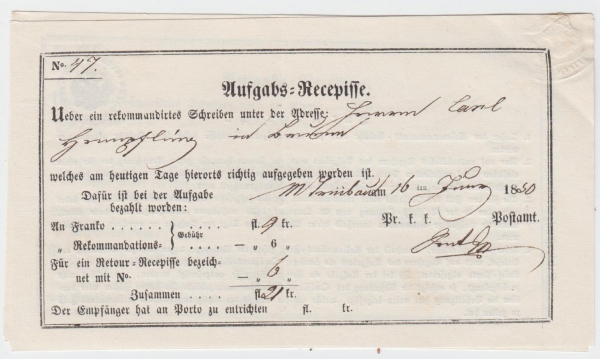 No. 47.
Aufgabs=Recepisse.
Ueber ein rekommandirtes Schreiben unter der Adresse: Herrn Carl
in Brünn
welches am heutigen Tage hierorts richtig aufgegeben worden ist.
Dafür ist bei der Aufgabe bezahlt worden:
M Trübau am 16 im Juny 1850
An Franko . . . . . } Gebühr fl. 9 kr.
„ Rekommandations= } — „ 6 „
Pr. k. k. Postamt.
Für ein Retour=Recepisse bezeich=
net mit No. — „ 6 „
Zusammen . . . . fl. 21 kr.
Der Empfänger hat an Porto zu entrichten fl. kr.